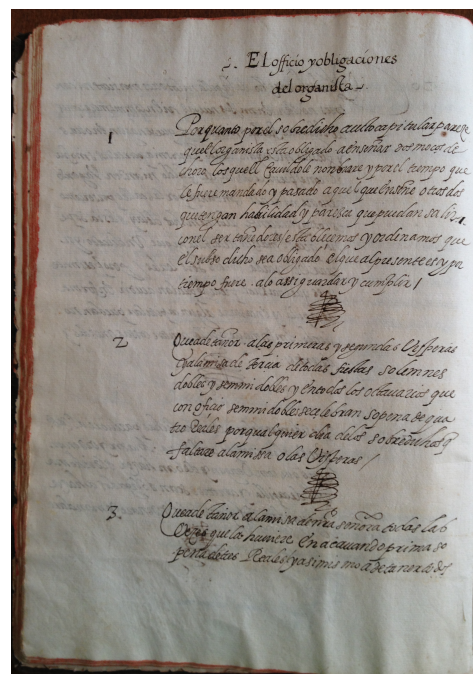 El officio y obligaciones
del organista
1
Por quanto por el sobredicho aucto capitular pareçe
quel organista esta obligado a enseñar dos moços de
choro, los quel Cauildo le nombrare y por el tiempo que
le fuere mandado y pasado aquel que enseñe otros dos
que tengan habilidad y paresca que puedan salir
con el ser tañedores, estableçemos y ordenamos que
el subso dicho sea obligado el que al presente es y por
tiempo fuere alo assi guardar y cumplir /
2
Que a de tañer a las primeras y segundas Visperas
y a la misa de tercia de todas fiestas solemnes
dobles y semmidobles y en todos los octauarios que
con oficio semmidobles se celebran so pena de qua
tro Reales por qualquier dia delos sobredichos q
faltare a la misa o las Visperas /
3
Que a de tañer a la misa de nrã señora todas las
Vezes que las huuiere en acauando prima so
pena de tres Reales y asimesmo a de tañer todos